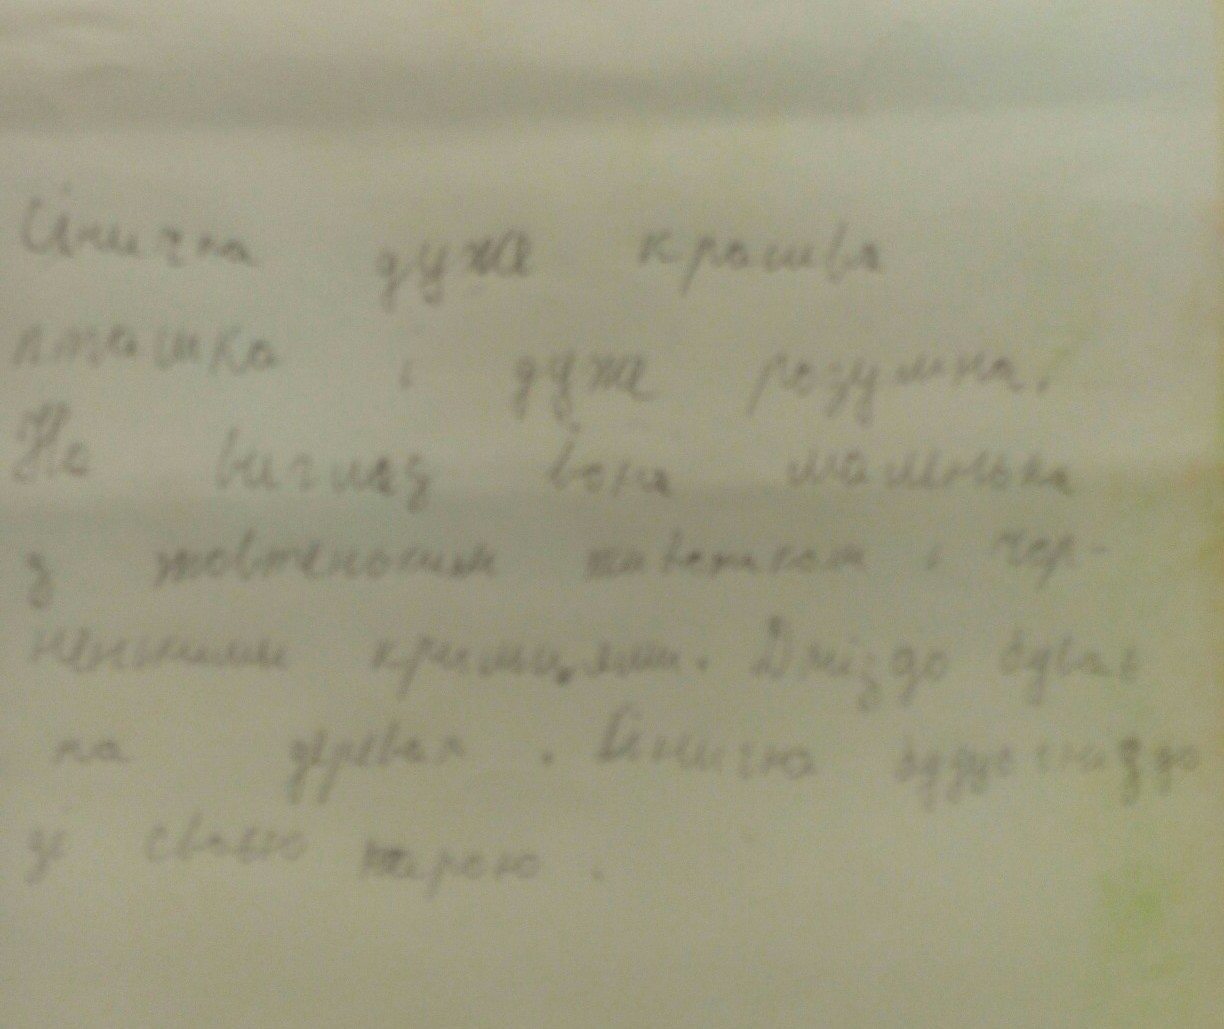 Синичка дуже красива
пташка і дуже розумна.
На вигляд вона маленька
з жовтеньким животиком і чор-
ненькими крильцями. Гніздо буває
на деревах. Синичка будує гніздо
зі своєю парою.